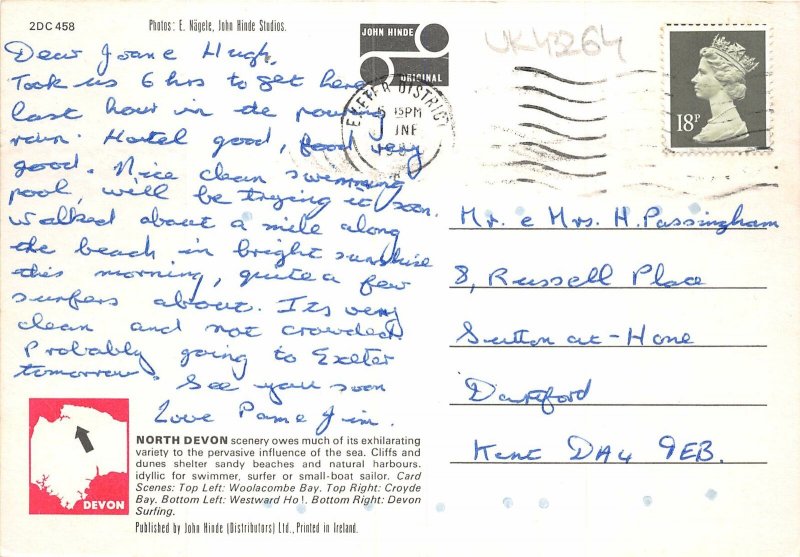 2DC 458
Photos: E. Nägele, John Hinde Studios.
JOHN HINDE
ORIGINAL
UK43264
EXETER DISTRICT
5 15PM
JNE
18P
Dear Joane Hugh,
Took us 6 hrs to get here
last hour in the pouring
rain. Hotel good, food very
good. Nice clean swimming
pool, will be trying it soon.
Walked about a mile along
the beach in bright sunshine
this morning, quite a few
surfers about. Its very
clean and not crowded.
Probably going to Exeter
tomorrow. See you soon
Love Pam e Jim.
Mr. e Mrs. H. Passingham
8, Russell Place
Sutton-at-Hone
Dartford
Kent DA4 9EB.
DEVON
NORTH DEVON scenery owes much of its exhilarating
variety to the pervasive influence of the sea. Cliffs and
dunes shelter sandy beaches and natural harbours.
idyllic for swimmer, surfer or small-boat sailor. Card
Scenes: Top Left: Woolacombe Bay. Top Right: Croyde
Bay. Bottom Left: Westward Ho!. Bottom Right: Devon
Surfing.
Published by John Hinde (Distributors) Ltd., Printed in Ireland.